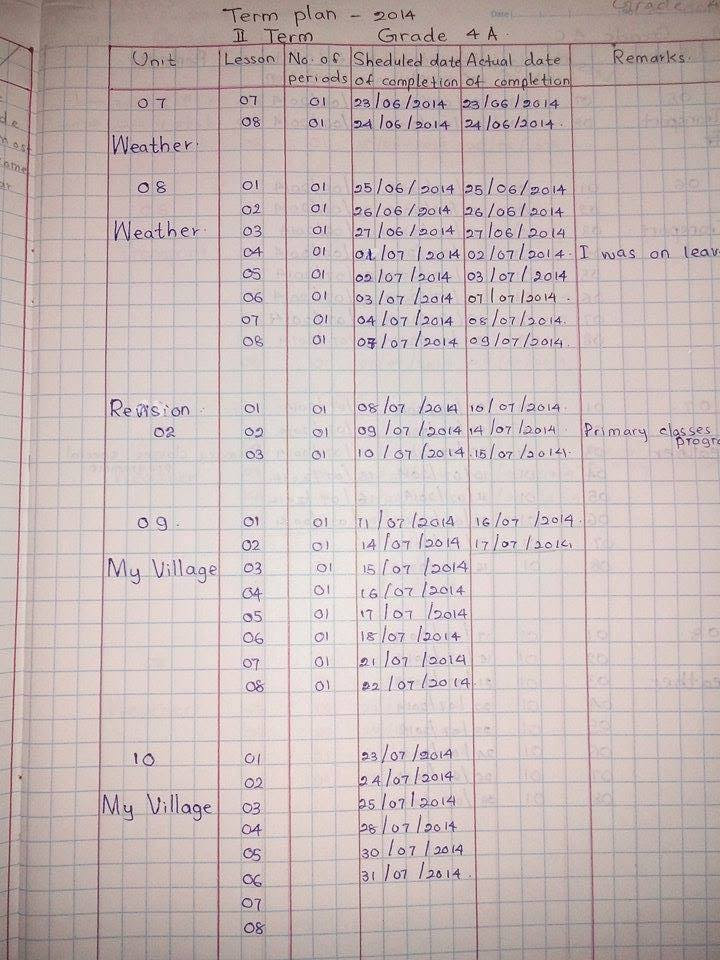 Term plan - 2014
II Term Grade 4 A.
Unit Lesson No. of periods Sheduled date of completion Actual date of completion Remarks.
07 07 01 23/06/2014 23/06/2014
08 01 24/06/2014 24/06/2014.
Weather.
08 01 01 25/06/2014 25/06/2014
02 01 26/06/2014 26/06/2014
Weather. 03 01 27/06/2014 27/06/2014
04 01 01/07/2014 02/07/2014. I was on leav
05 01 02/07/2014 03/07/2014
06 01 03/07/2014 07/07/2014.
07 01 04/07/2014 08/07/2014.
08 01 07/07/2014 09/07/2014.
Revision. 01 01 08/07/2014 10/07/2014.
02 02 01 09/07/2014 14/07/2014. Primary classes
Progr
03 01 10/07/2014. 15/07/2014.
09. 01 01 11/07/2014 16/07/2014.
02 01 14/07/2014 17/07/2014
My Village 03 01 15/07/2014
04 01 16/07/2014
05 01 17/07/2014
06 01 18/07/2014
07 01 21/07/2014
08 01 22/07/2014.
10 01 23/07/2014
02 24/07/2014
My Village 03 25/07/2014
04 28/07/2014
05 30/07/2014
06 31/07/2014.
07
08